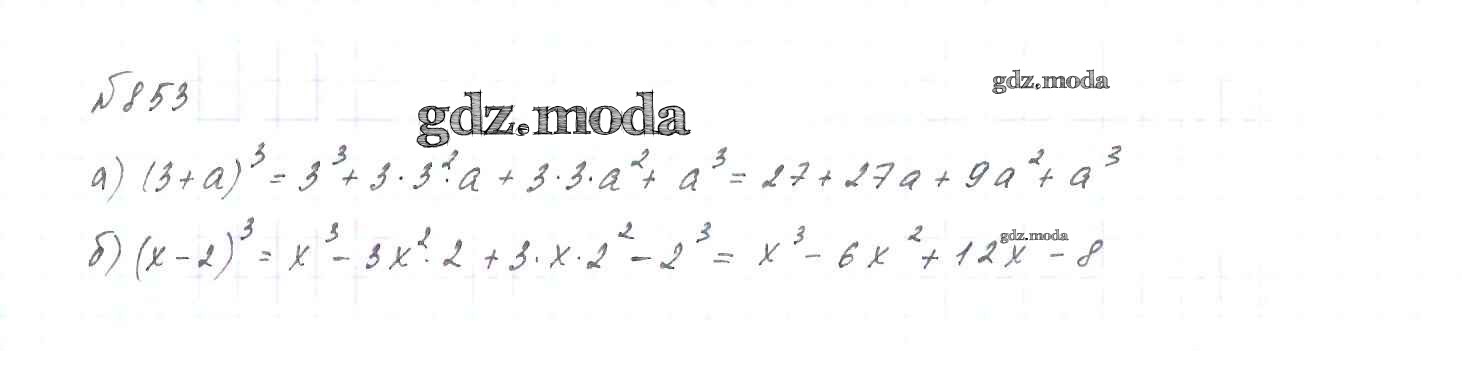 №853
gdz.moda
gdz.moda
а) (3+a)³ = 3³ + 3·3²·a + 3·3·a² + a³ = 27 + 27a + 9a² + a³
б) (x-2)³ = x³ - 3x²·2 + 3·x·2² - 2³ = x³ - 6x² + 12x - 8
gdz.moda